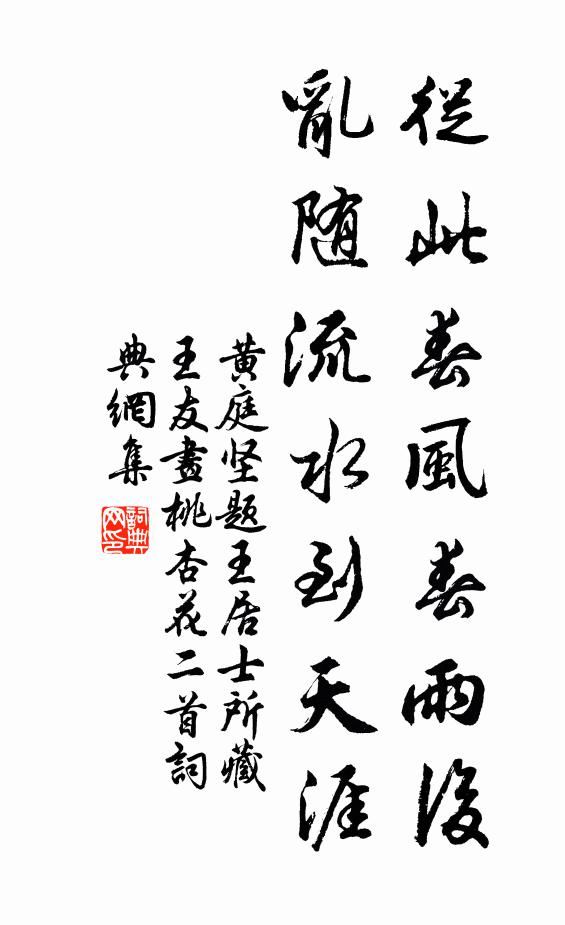 從此春風春雨後
亂随流水到天涯
黄庭坚题王居士所藏
王友畫桃杏花二首詞
典網集
詞典网印